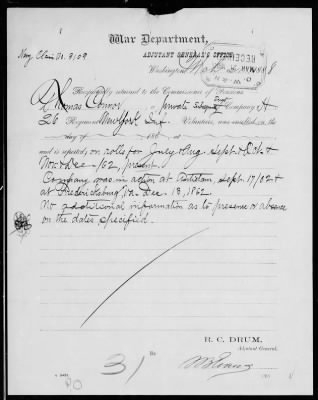 War Department,
ADJUTANT GENERAL'S OFFICE,
Washington,
Respectfully returned to the Commissioner of Pensions.
Thomas Connor, a private, Company H
26 Regiment New York Inf. Volunteers, was enrolled on the
day of 186 , at
and is reported, on rolls for July & Aug. Sept. & Oct. &
Nov. & Dec. /62, present.
Company was in action at Antietam, Sept. 17/62 &
at Fredericksburg, Va. Dec. 13, 1862.
No additional information as to presence or absence
on the dates specified.
R. C. DRUM,
Adjutant General.
31
By